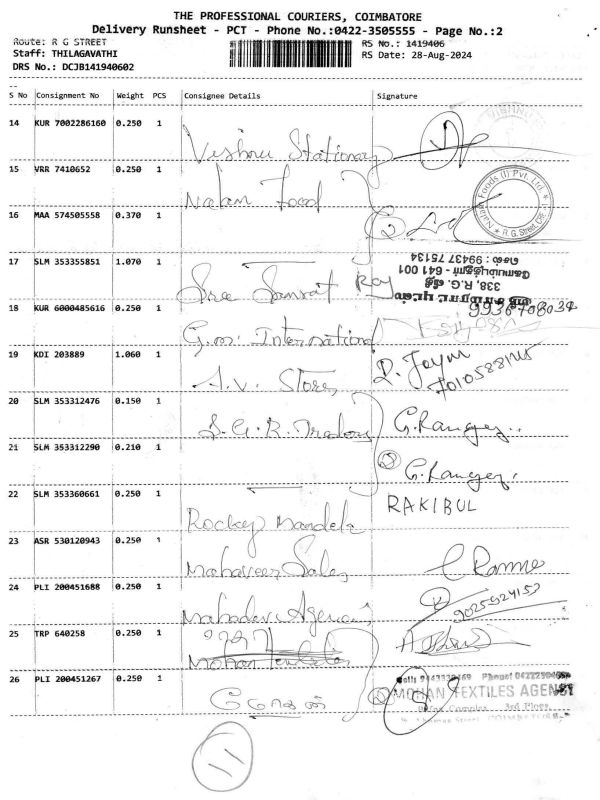 THE PROFESSIONAL COURIERS, COIMBATORE
Delivery Runsheet - PCT - Phone No.:0422-3505555 - Page No.:2
Route: R G STREET
RS No.: 1419406
Staff: THILAGAVATHI
RS Date: 28-Aug-2024
DRS No.: DCJB141940602
S No Consignment No Weight PCS Consignee Details Signature
14 KUR 7002286160 0.250 1 Vishnu Stationary
15 VRR 7410652 0.250 1 Nalan Food
Foods (I) Pvt. Ltd. * R. G. Street, CBE
16 MAA 574505558 0.370 1
338, R.G. வீதி
கோயம்புத்தூர் - 641 001
செல் : 99437 76134
17 SLM 353355851 1.070 1 Sree Ray
9936708034
18 KUR 6000485616 0.250 1 G.M. International
19 KDI 203889 1.060 1 A.V. Stores
20 SLM 353312476 0.150 1 S.G.R. Traders
21 SLM 353312290 0.210 1
22 SLM 353360661 0.250 1 Rockey RAKIBUL
23 ASR 530120943 0.250 1 Mahaveer Sales
24 PLI 200451688 0.250 1 Mahadev Agencies
25 TRP 640258 0.250 1
26 PLI 200451267 0.250 1
MOHAN TEXTILES AGENCY
3rd Floor,
11